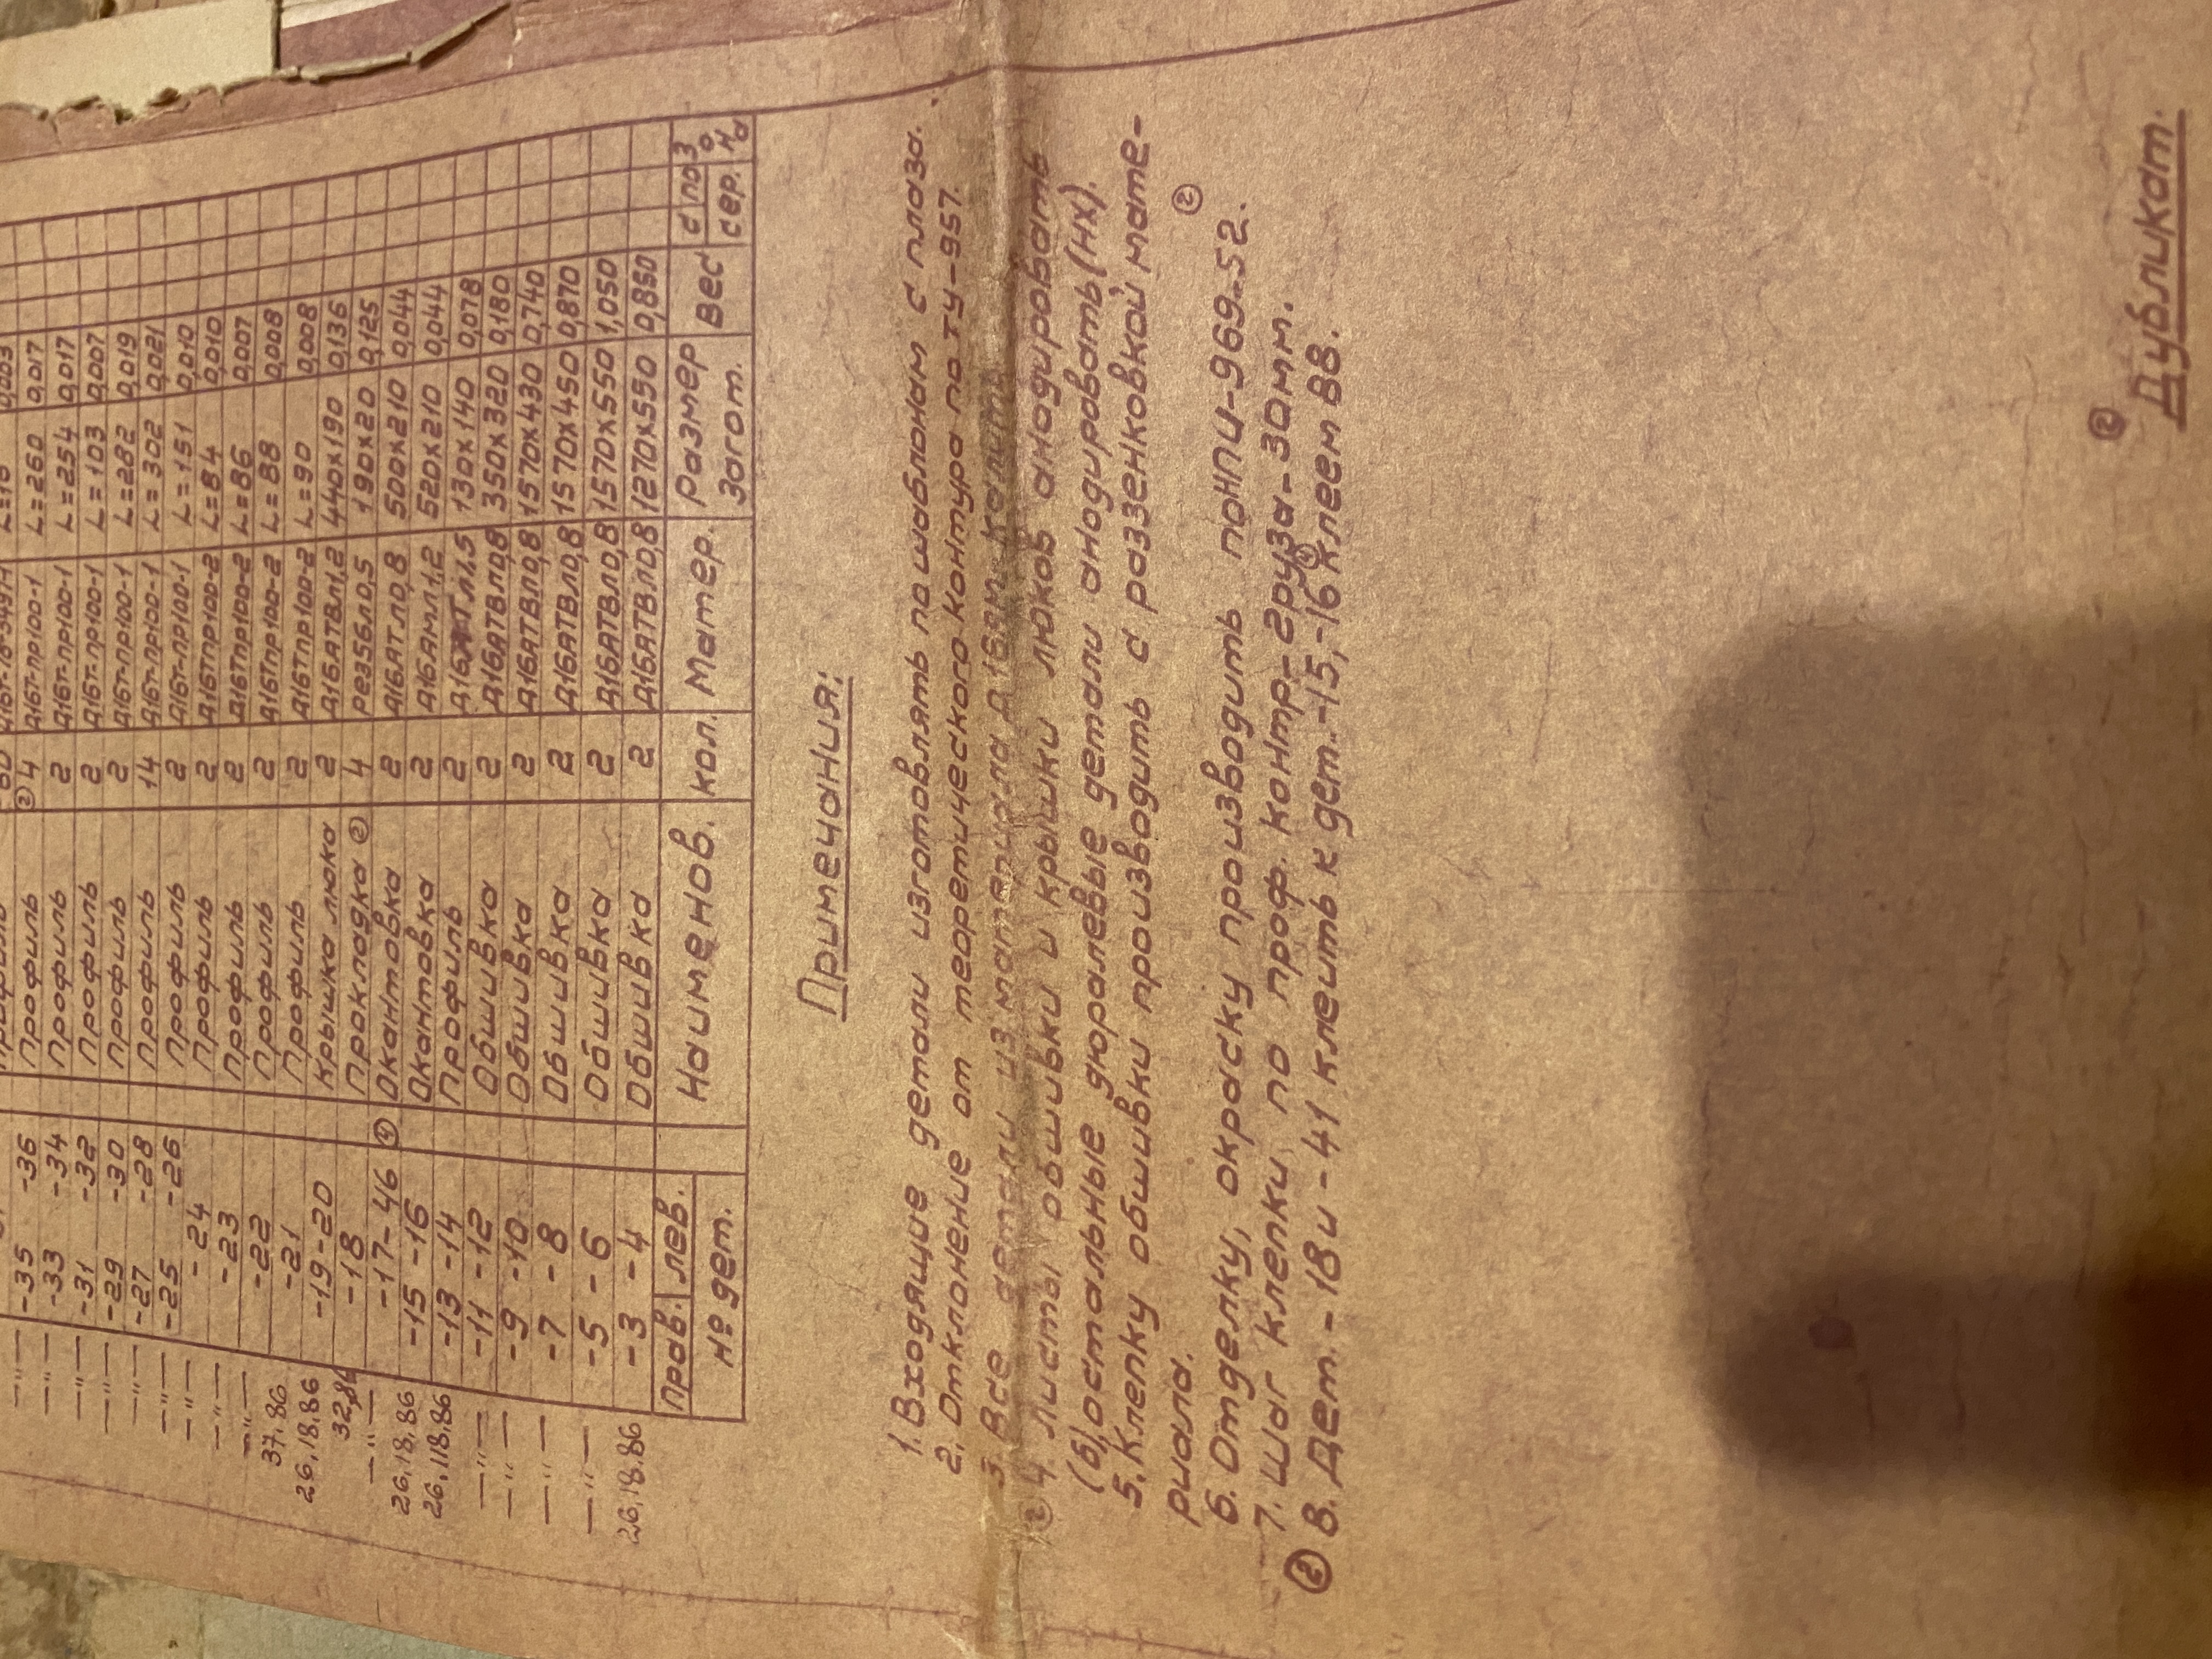 —"— -35 -36 Профиль ② 4 Д16Т-пр100-1 L=260 0,017
—"— -33 -34 Профиль 2 Д16Т-пр100-1 L=254 0,017
—"— -31 -32 Профиль 2 Д16Т-пр100-1 L=103 0,007
—"— -29 -30 Профиль 2 Д16Т-пр100-1 L=282 0,019
—"— -27 -28 Профиль 14 Д16Т-пр100-1 L=302 0,021
—"— -25 -26 Профиль 2 Д16Т-пр100-1 L=151 0,010
—"— -24 Профиль 2 Д16Тпр100-2 L=84 0,010
—"— -23 Профиль 2 Д16Тпр100-2 L=86 0,007
—"— -22 Профиль 2 Д16Тпр100-2 L=88 0,008
37.86 -21 Профиль 2 Д16Тпр100-2 L=90 0,008
26.18.86 -19-20 Крышка люка 2 Д16АТВл1,2 440x190 0,136
32.86 -18 Прокладка ② 4 Рез56л0,5 190x20 0,125
—"— -17-46 ④ Окантовка 2 Д16АТл0,8 500x210 0,044
26.18.86 -15 -16 Окантовка 2 Д16Амл1,2 520x210 0,044
26.18.86 -13 -14 Профиль 2 Д16 Тл1,5 130x140 0,078
—"— -11 -12 Обшивка 2 Д16АТВл0,8 350x320 0,180
—"— -9 -10 Обшивка 2 Д16АТВл0,8 1570x430 0,740
—"— -7 -8 Обшивка 2 Д16АТВл0,8 1570x450 0,870
—"— -5 -6 Обшивка 2 Д16АТВл0,8 1570x550 1,050
26.18.86 -3 -4 Обшивка 2 Д16АТВл0,8 1270x550 0,850
Прав. лев. Наименов. кол. Матер. Размер Вес с по Зона
№ дет. загот. сер.
Примечания:
1. Входящие детали изготовлять по шаблонам с плаза.
2. Отклонение от теоретического контура по ТУ-957.
3. Все детали из материала Д16Ам калить
② 4. Листы обшивки и крышки люков анодировать
(б), остальные дюралевые детали анодировать (НХ).
5. Клепку обшивки производить с раззенковкой мате-
риала. ②
6. Отделку, окраску производить по НПИ-969-52.
7. Шаг клепки по проф. контр-груза-30мм.
② 8. Дет. -18 и -41 клеить к дет. -15,-16 клеем 88.
②
Дубликат.